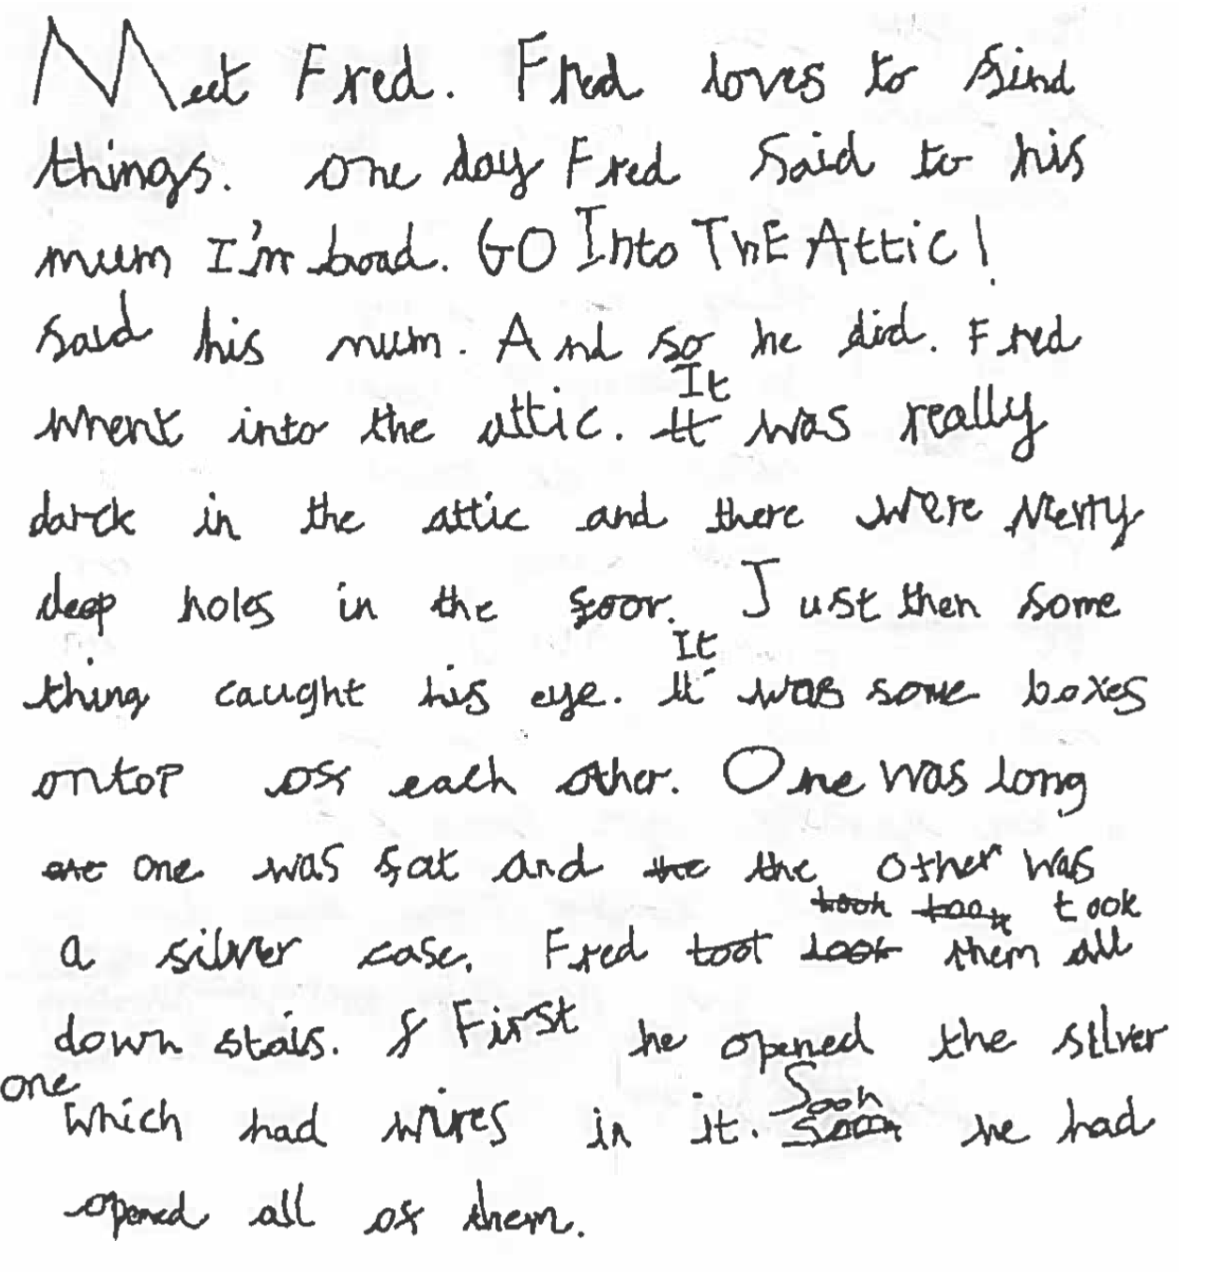 Meet Fred. Fred loves to find
things. one day Fred said to his
mum I'm boad. GO Into ThE Attic!
said his mum. And so he did. Fred
whent into the attic. It was really
darck in the attic and there were verry
deep holes in the foor. Just then some
thing caught his eye. It was some boxes
ontop of each other. One was long
one was fat and the other was
a silver case. Fred took them all
down stais. First he opened the silver
one which had wires in it. Soon he had
opened all of them.